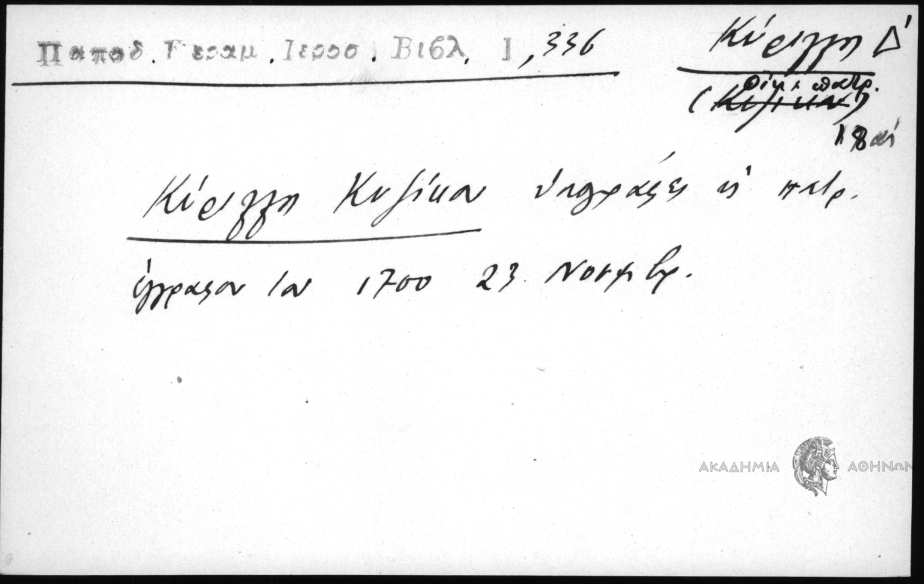 Παπαδ. Κεραμ. Ιεροσ. Βιβλ. 1, 336
Κύριλλος Δ'
οἰκ. πατρ.
(Κυζίκου)
18 αἰ
Κύριλλος Κυζίκου ὑπογράφει εἰς πατρ.
ἔγγραφον τοῦ 1700 23 Νοεμβρ.
ΑΚΑΔΗΜΙΑ ΑΘΗΝΩΝ